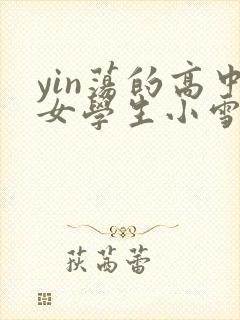 yin蕩的高中
女學生小雪
荻茜蕾